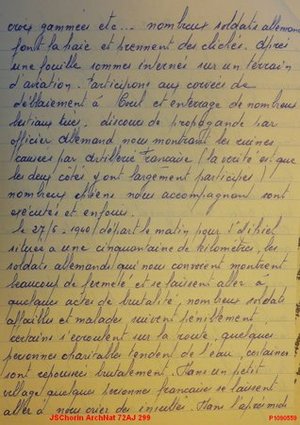 croix gammées etc... nombreux soldats allemands
font la haie et prennent des clichés. Après
une fouille sommes internés sur un terrain
d'aviation. Participons aux corvées de
déblaiement à Creil et enterrage de nombreux
bestiaux tués, discours de propagande par
officier allemand nous montrant les ruines
causées par artillerie Française (la vérité est que
les deux côtés y ont largement participés)
nombreux chiens nous accompagnant sont
exécutés et enfouis.
Le 27/6 - 1940 départ le matin pour
située a une cinquantaine de kilomètres, les
soldats allemands qui nous convoient montrent
beaucoup de fermeté, et se laissent aller a
quelques actes de brutalité, nombreux soldats
affaiblis et malades suivent péniblement
certains s'écroulent sur la route, quelques
personnes charitables tendent de l'eau, certaines
sont repoussées brutalement. Dans un petit
village quelques personnes française se laissent
aller a nous crier des insultes. Dans l'après midi
JSChorin ArchNat 72AJ 299
P1090559